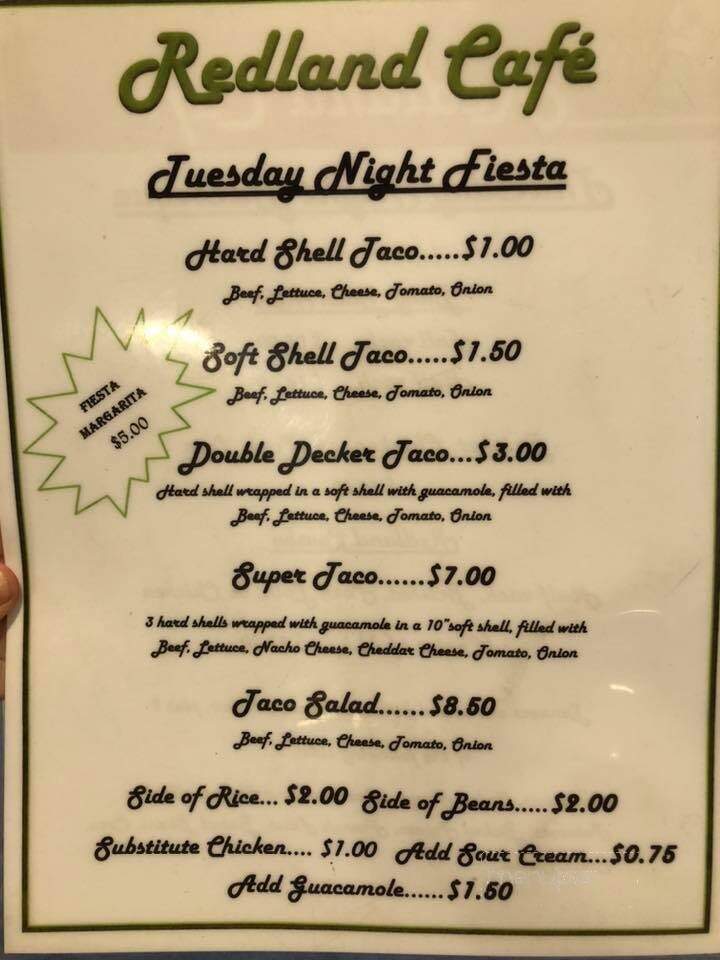 Redland Café
Tuesday Night Fiesta
Hard Shell Taco.....$1.00
Beef, Lettuce, Cheese, Tomato, Onion
Soft Shell Taco.....$1.50
Beef, Lettuce, Cheese, Tomato, Onion
FIESTA
MARGARITA
$5.00
Double Decker Taco...$3.00
Hard shell wrapped in a soft shell with guacamole, filled with
Beef, Lettuce, Cheese, Tomato, Onion
Super Taco......$7.00
3 hard shells wrapped with guacamole in a 10"soft shell, filled with
Beef, Lettuce, Nacho Cheese, Cheddar Cheese, Tomato, Onion
Taco Salad......$8.50
Beef, Lettuce, Cheese, Tomato, Onion
Side of Rice... $2.00 Side of Beans.....$2.00
Substitute Chicken.... $1.00 Add Sour Cream...$0.75
Add Guacamole......$1.50